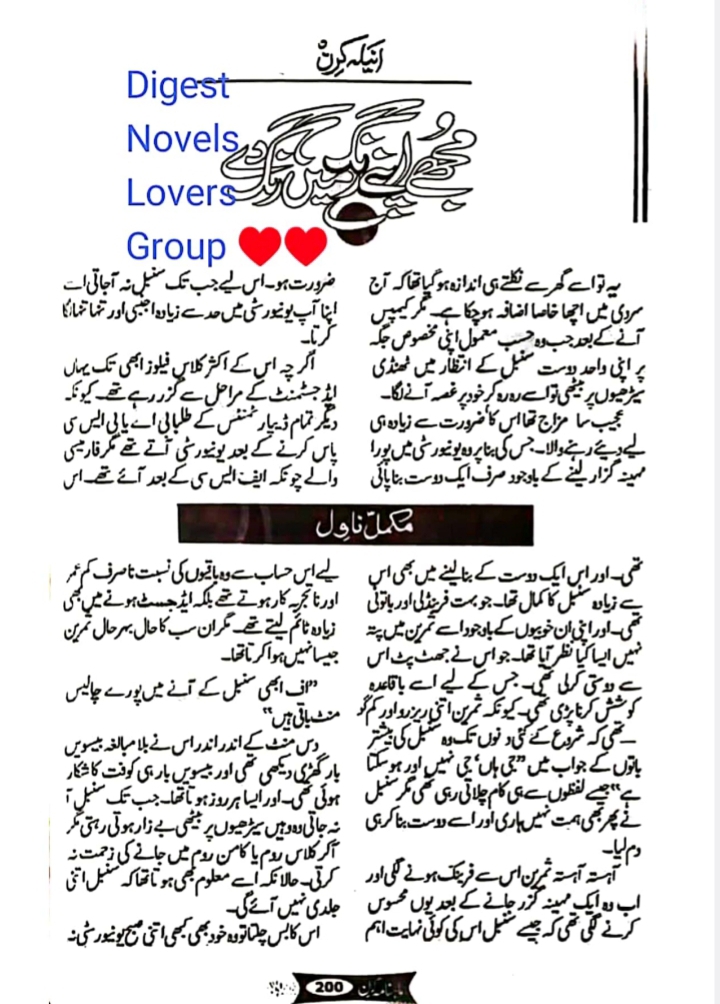 انیلہ کرن
Digest
Novels
Lovers
Group ❤❤
مجھے اپنے رنگ میں رنگ دے
یہ تو اسے گھر سے نکلتے ہی اندازہ ہو گیا تھا کہ آج
سردی میں اچھا خاصا اضافہ ہو چکا ہے۔ مگر کیمپس
آنے کے بعد جب وہ حسب معمول اپنی مخصوص جگہ
پر اپنی واحد دوست سنبل کے انتظار میں ٹھنڈی
سیڑھیوں پر بیٹھی تو اسے رہ رہ کر خود پر غصہ آنے لگا۔
عجیب سا مزاج تھا اس کا ضرورت سے زیادہ ہی
لیے دیئے رہنے والا۔ جس کی بنا پر وہ یونیورسٹی میں پورا
مہینہ گزار لینے کے باوجود صرف ایک دوست بنا پائی
مکمل ناول
تھی۔ اور اس ایک دوست کے بنا لینے میں بھی اس
سے زیادہ سنبل کا کمال تھا۔ جو بہت فرینڈلی اور باتونی
تھی۔ اور اپنی ان خوبیوں کے باوجود اسے ثمرین میں پتہ
نہیں ایسا کیا نظر آیا تھا۔ جو اس نے جھٹ پٹ اس
سے دوستی کرلی تھی۔ جس کے لیے اسے باقاعدہ
کوشش کرنا پڑی تھی۔ کیونکہ ثمرین اتنی ریزرو اور کم گو
تھی کہ شروع کے کئی دنوں تک وہ سنبل کی بیشتر
باتوں کے جواب میں "جی ہاں، جی نہیں اور ہو سکتا
ہے" جیسے لفظوں سے ہی کام چلاتی رہی تھی مگر سنبل
نے پھر بھی ہمت نہیں ہاری اور اسے دوست بنا کر ہی
دم لیا۔
آہستہ آہستہ ثمرین اس سے فرینک ہونے لگی اور
اب وہ ایک مہینہ گزر جانے کے بعد یوں محسوس
کرنے لگی تھی کہ جیسے سنبل اس کی کوئی نہایت اہم
ضرورت ہو۔ اس لیے جب تک سنبل نہ آجاتی اسے
اپنا آپ یونیورسٹی میں حد سے زیادہ اجنبی اور تنہا تنہا لگا
کرتا۔
اگرچہ اس کے اکثر کلاس فیلوز ابھی تک یہاں
ایڈجسٹمنٹ کے مراحل سے گزر رہے تھے۔ کیونکہ
دیگر تمام ڈیپارٹمنٹس کے طلبا بی اے یا بی ایس سی
پاس کرنے کے بعد یونیورسٹی آتے تھے مگر فارمیسی
والے چونکہ ایف ایس سی کے بعد آئے تھے۔ اس
لیے اس حساب سے وہ باقیوں کی نسبت نا صرف کم عمر
اور نا تجربہ کار ہوتے تھے بلکہ ایڈجسٹ ہونے میں بھی
زیادہ ٹائم لیتے تھے۔ مگر ان سب کا حال بہرحال ثمرین
جیسا نہیں ہوا کرتا تھا۔
"اف ابھی سنبل کے آنے میں پورے چالیس
منٹ باقی ہیں"
دس منٹ کے اندر اندر اس نے بلا مبالغہ بیسویں
بار گھڑی دیکھی تھی اور بیسویں بار ہی کوفت کا شکار
ہوئی تھی۔ اور ایسا ہر روز ہوتا تھا۔ جب تک سنبل آ
نہ جاتی وہ وہیں سیڑھیوں پر بیٹھی بے زار ہوتی رہتی مگر
اگر کلاس روم یا کامن روم میں جانے کی زحمت نہ
کرتی۔ حالانکہ اسے معلوم بھی ہوتا تھا کہ سنبل اتنی
جلدی نہیں آئے گی۔
اس کا بس چلتا تو وہ خود بھی کبھی اتنی صبح یونیورسٹی نہ
ماہنامہ کرن 200